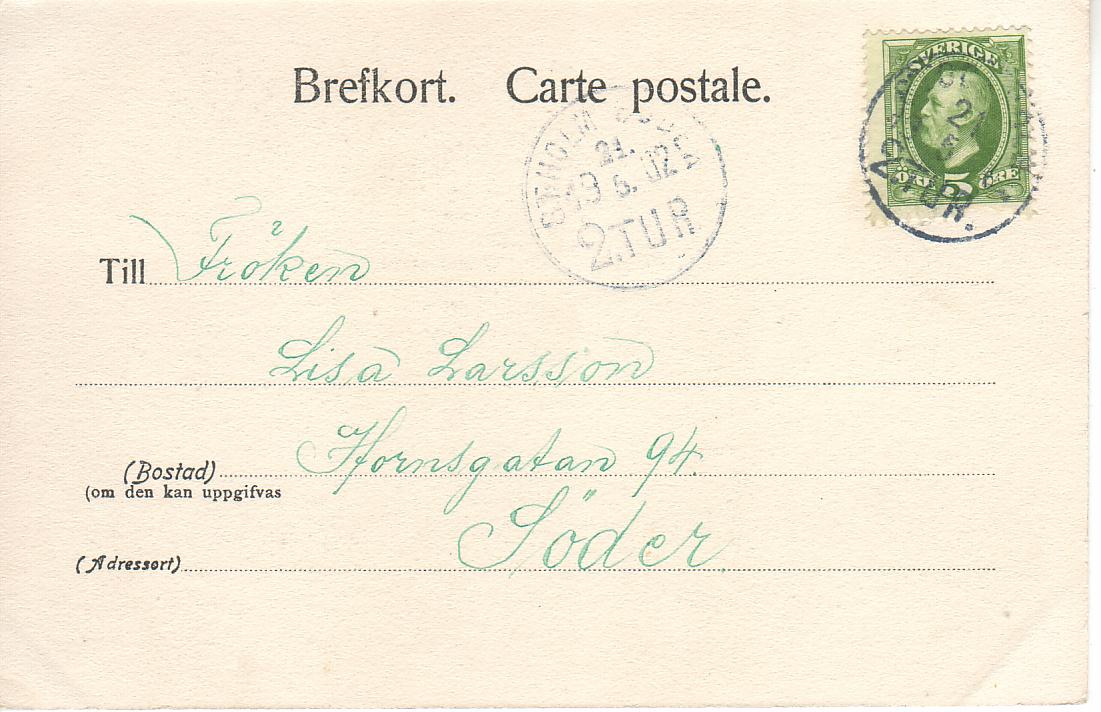 Brefkort. Carte postale.
SVERIGE
5
ÖRE ÖRE
21
5
2.TUR.
STHOLM SÖDER
21.
19 5. 02
2.TUR
Till Fröken
Lisa Larsson
(Bostad) Hornsgatan 94.
(om den kan uppgifvas
(Adressort) Söder